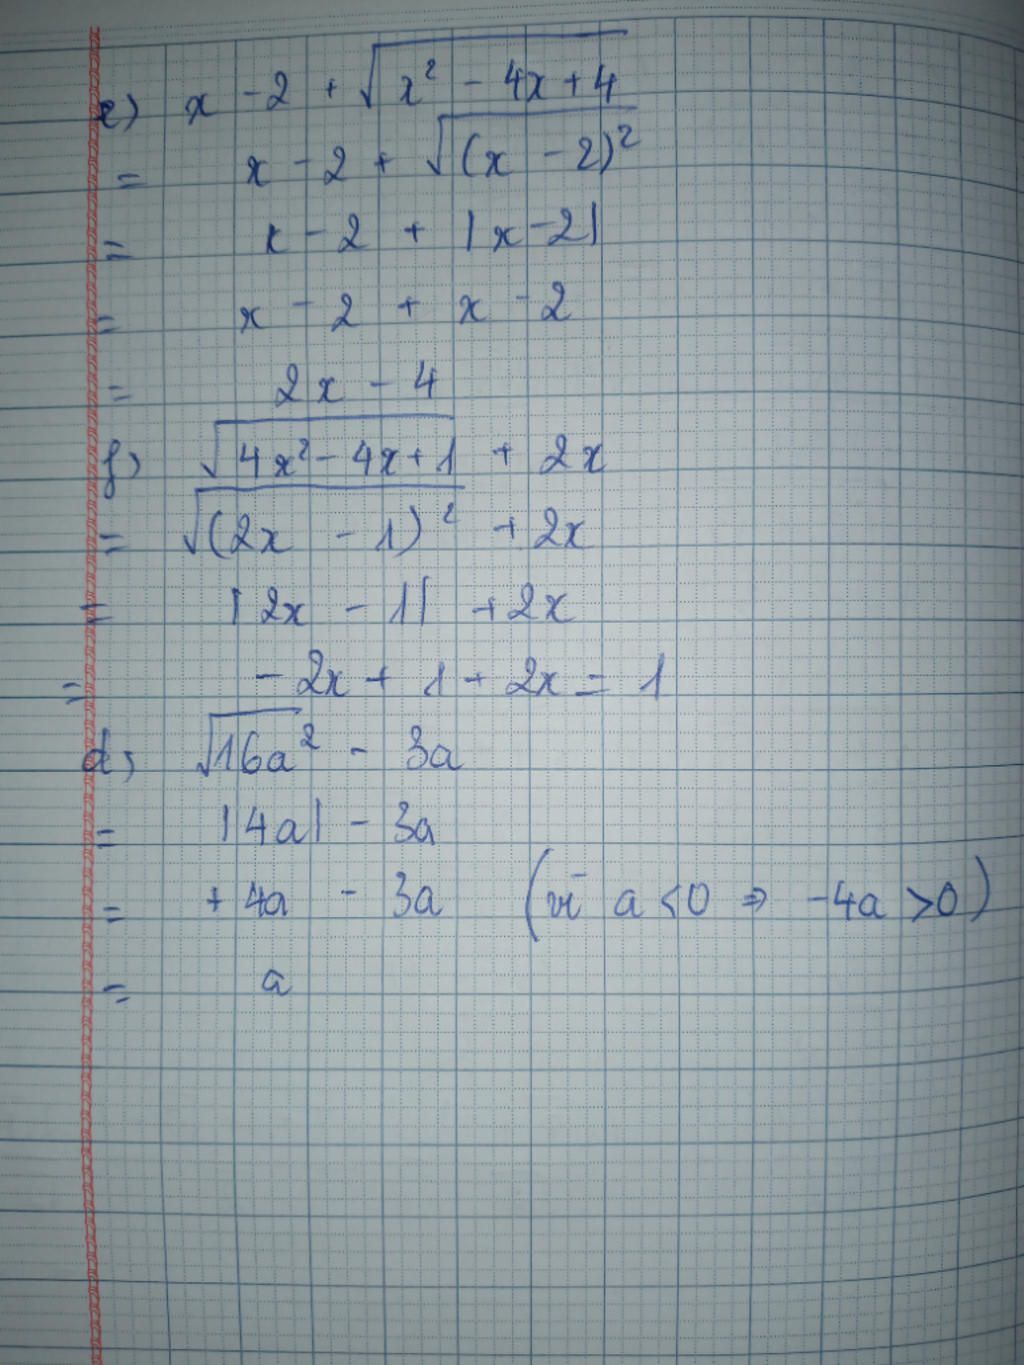 e) x - 2 + √(x² - 4x + 4)
= x - 2 + √((x - 2)²)
= x - 2 + |x - 2|
= x - 2 + x - 2
= 2x - 4
f) √(4x² - 4x + 1) + 2x
= √((2x - 1)²) + 2x
= |2x - 1| + 2x
= -2x + 1 + 2x = 1
d) √(16a²) - 3a
= |4a| - 3a
= + 4a - 3a (vì a < 0 ⇒ -4a > 0)
= a